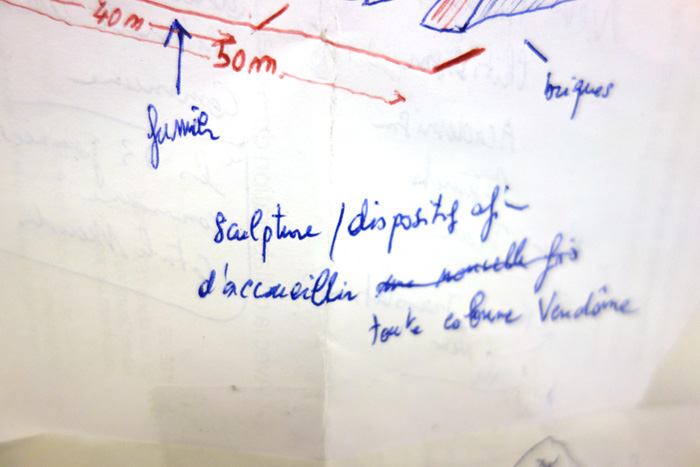 40m
50m.
briques
fumier
sculpture / dispositif afin
d'accueillir une nouvelle fois
toute colonne Vendôme